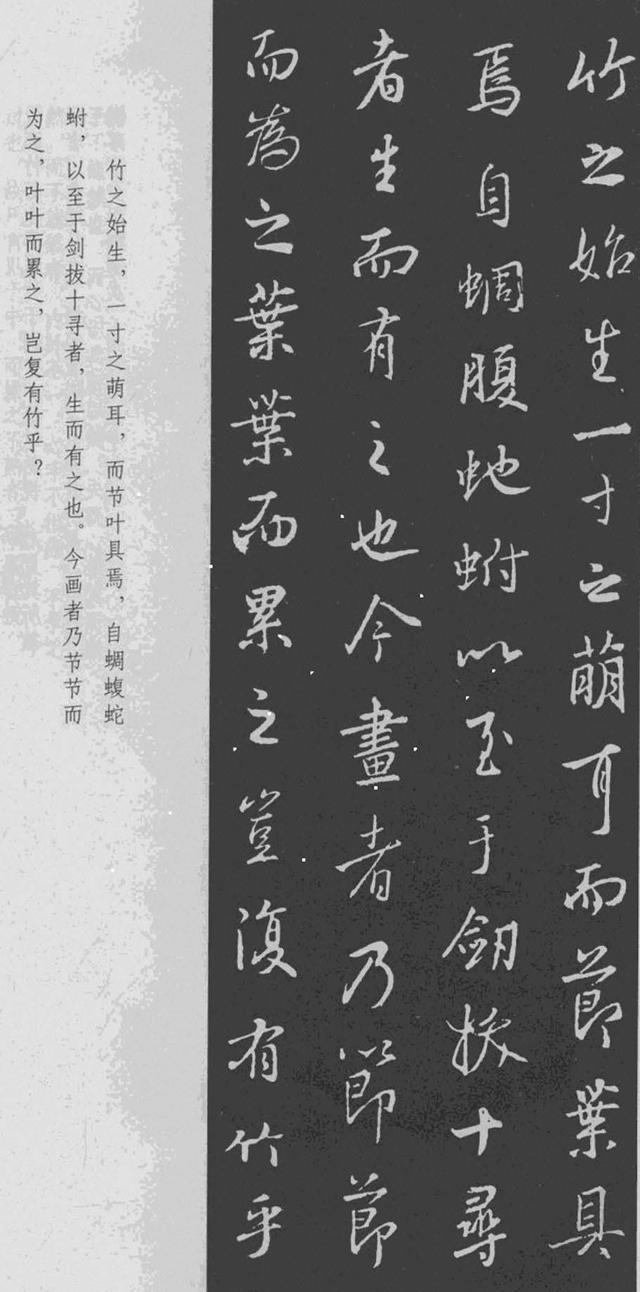 竹之始生一寸之萌耳而節葉具
焉自蜩腹虵蚹以至于劒拔十尋
者生而有之也今畫者乃節節
而為之葉葉而累之豈復有竹乎
竹之始生，一寸之萌耳，而节叶具焉，自蜩蝮蛇
蚹，以至于剑拔十寻者，生而有之也。今画者乃节节而
为之，叶叶而累之，岂复有竹乎？